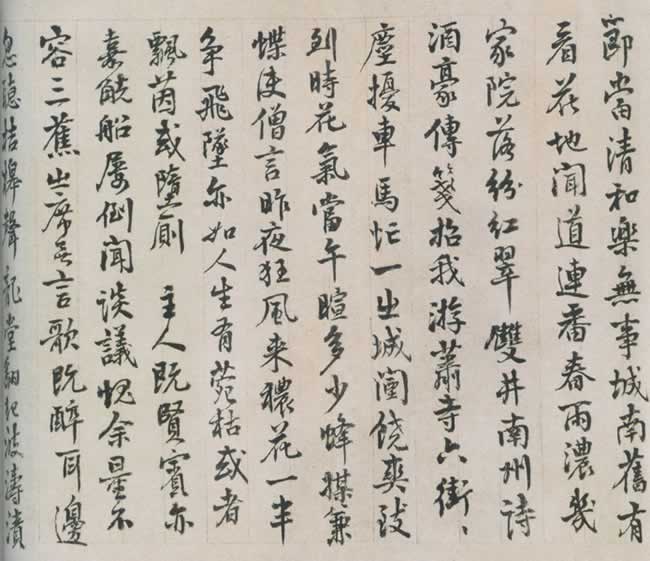 節當清和樂無事城南舊有
看花地聞道連番春雨濃幾
家院落紛紅翠 雙井南州詩
酒豪傳箋招我游蕭寺六街〻
塵擾車馬忙一出城闉饒爽致
到時花氣當午暄多少蜂媒兼
蝶使僧言昨夜狂風来穠花一半
争飛墜亦如人生有菀枯或者
飄茵或墮廁 主人既賢賓亦
嘉觥船屢倒聞談議愧余量不
容三蕉出席言歌既醉耳邊
忽聽桔槔聲龍堂波濤